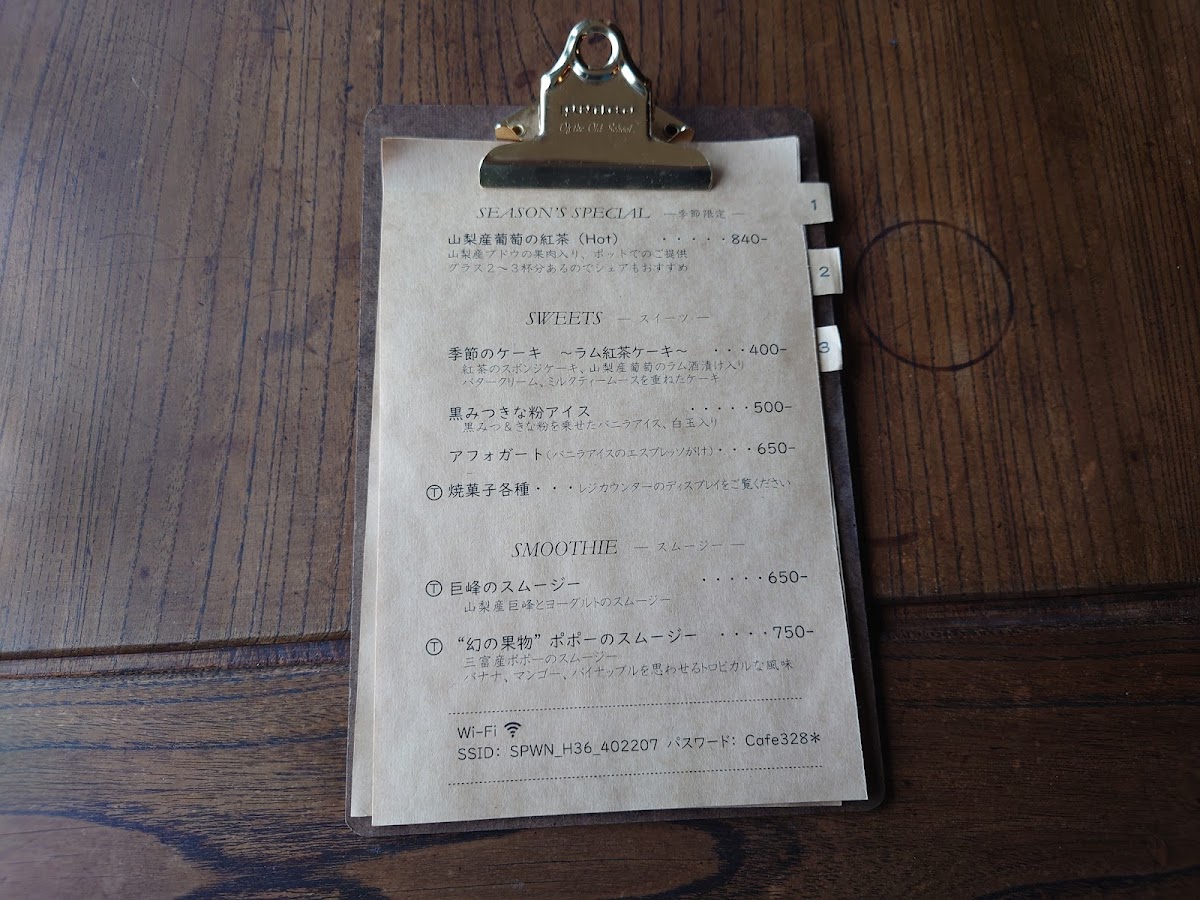 penco
Of the Old School.
SEASON'S SPECIAL ―季節限定―
山梨産葡萄の紅茶（Hot） ・・・・・840-
山梨産ブドウの果肉入り、ポットでのご提供
グラス２～３杯分あるのでシェアもおすすめ
SWEETS ― スイーツ ―
季節のケーキ ～ラム紅茶ケーキ～ ・・・400-
紅茶のスポンジケーキ、山梨産葡萄のラム酒漬け入り
バタークリーム、ミルクティームースを重ねたケーキ
黒みつきな粉アイス ・・・・・500-
黒みつ＆きな粉を乗せたバニラアイス、白玉入り
アフォガート（バニラアイスのエスプレッソがけ）・・・650-
Ⓣ 焼菓子各種・・・レジカウンターのディスプレイをご覧ください
SMOOTHIE ― スムージー ―
Ⓣ 巨峰のスムージー ・・・・・650-
山梨産巨峰とヨーグルトのスムージー
Ⓣ “幻の果物” ポポーのスムージー ・・・・750-
三富産ポポーのスムージー
バナナ、マンゴー、パイナップルを思わせるトロピカルな風味
Wi-Fi
SSID: SPWN_H36_402207 パスワード: Cafe328*
1
2
3